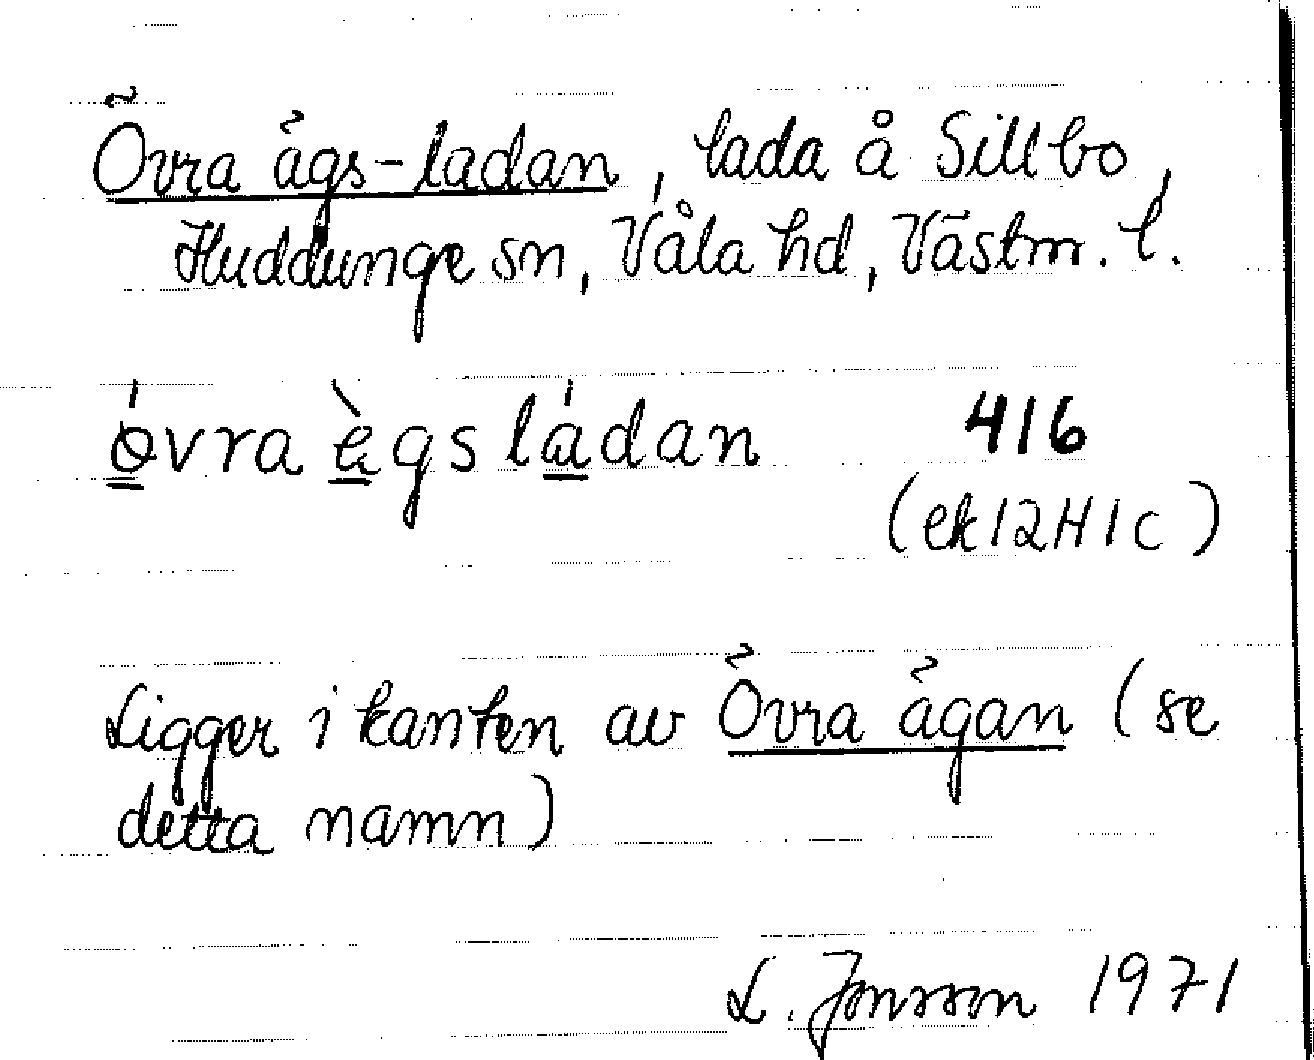 Övra ägs-ladan, lada å Sillbo,
Huddunge sn, Våla hd, Västm. l.
ǿvra ègsládan 416
(ek 12H1c)
Ligger i kanten av Övra ägan (se
detta namn)
L. Jonsson 1971